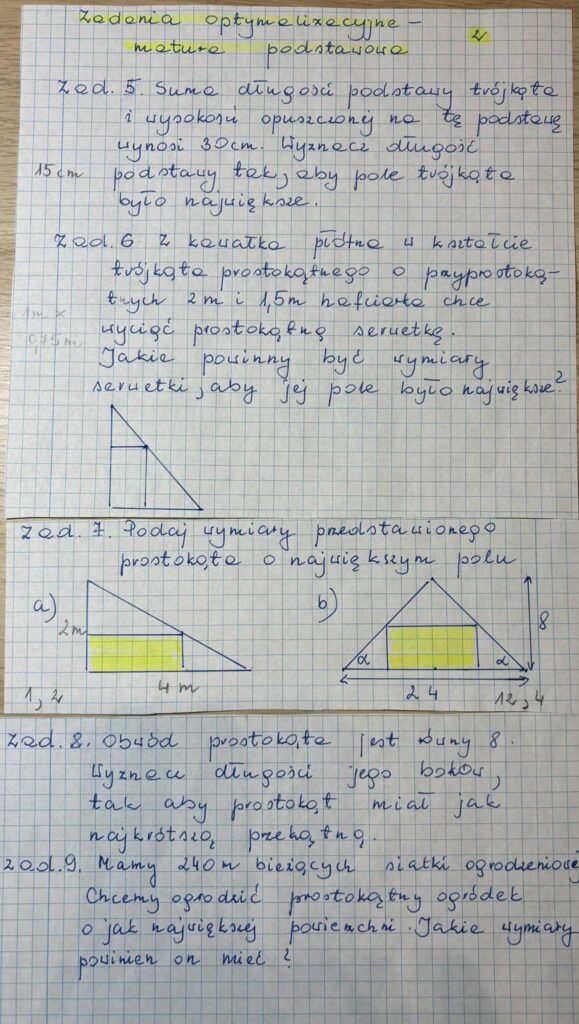 Zadania optymalizacyjne –
matura podstawowa
2
Zad. 5. Suma długości podstawy trójkąta
i wysokości opuszczonej na tę podstawę
wynosi 30cm. Wyznacz długość
podstawy tak, aby pole trójkąta
było największe.
15cm
Zad. 6 Z kawałka płótna w kształcie
trójkąta prostokątnego o przyprostoką-
tnych 2 m i 1,5m hafciarka chce
wyciąć prostokątną serwetkę.
Jakie powinny być wymiary
serwetki, aby jej pole było największe?
1m x
0,75m
Zad. 7. Podaj wymiary przedstawionego
prostokąta o największym polu
a)
2m
4 m
1, 2
b)
α
α
8
24
12, 4
Zad. 8. Obwód prostokąta jest równy 8.
Wyznacz długości jego boków,
tak aby prostokąt miał jak
najkrótszą przekątną.
Zad. 9. Mamy 240m bieżących siatki ogrodzeniowej
Chcemy ogrodzić prostokątny ogródek
o jak największej powierzchni. Jakie wymiary
powinien on mieć?